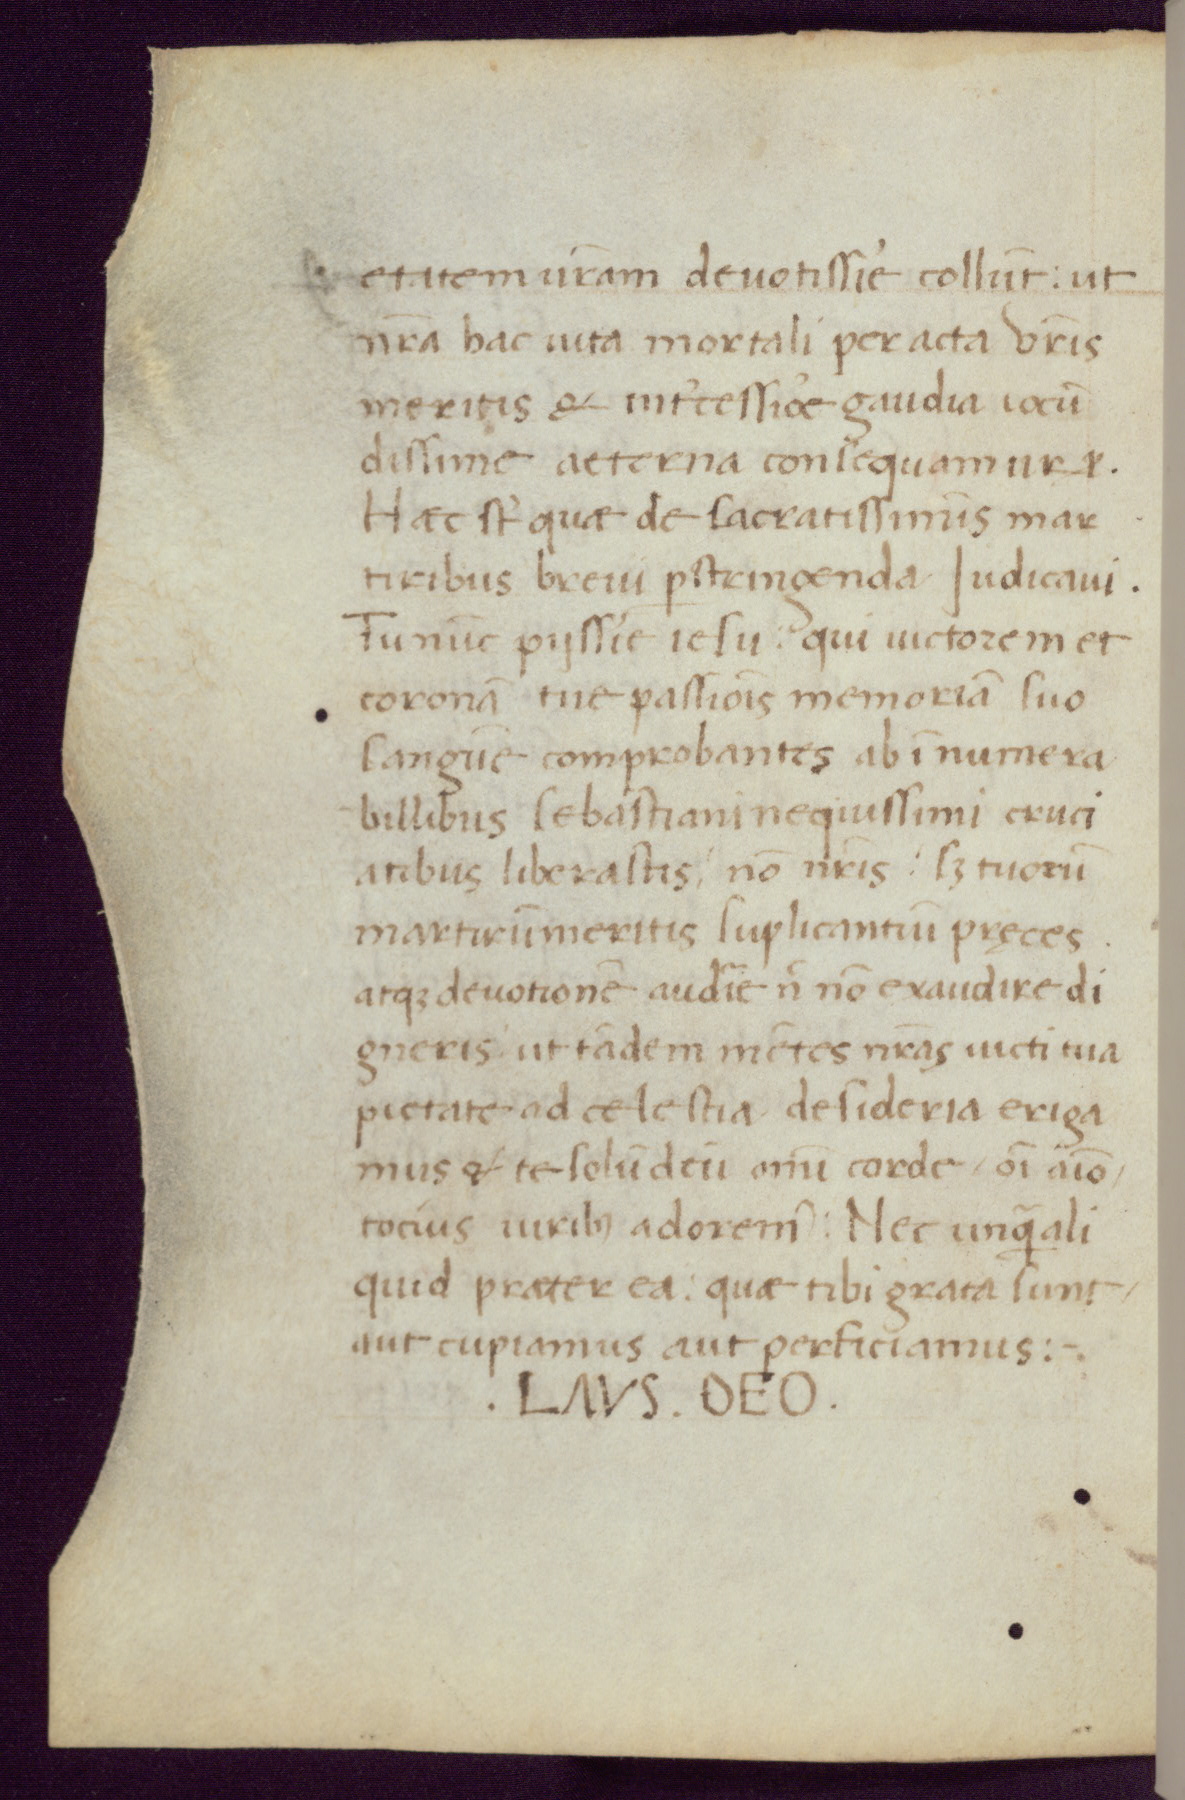 etatem ur̄am deuotissi͛e collūt: ut
nr̄a hac uita mortali peracta vr̄is
meritis & int͛cessiōe gaudia iocū
dissime aeterna consequamur.
Haec st͛ quae de sacratissimis mar
tiribus breui p̱stringenda Judicaui.
Tu nūc pijssi͛e iesu: qui uictorem et
coronā tue passiōis memoriā suo
sangūe comprobantes ab īnumera
billibus sebastiani nequissimi cruci
atibus liberastis, nō nr̄is: sꝫ tuorū
martirū meritis suplicantiū pręces
atqꝫ deuotionē audir̄e n̄ nō exaudire di
gneris: ut tādem mētes nr̄as uicti tua
pietate ad celestia desideria eriga
mus & te solū deū om̄i corde / oī aīo /
tocius uiribꝫ adorem᷒: Nec unq̄ ali
quid praeter ea: quae tibi grata sunt /
aut cupiamus aut perficiamus:-.
. LAVS. DEO.